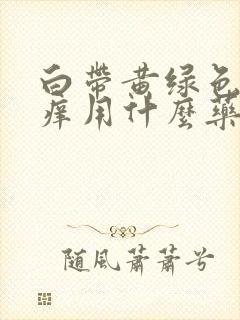 白带黄绿色
痒用什麼藥
随風蕭蕭兮